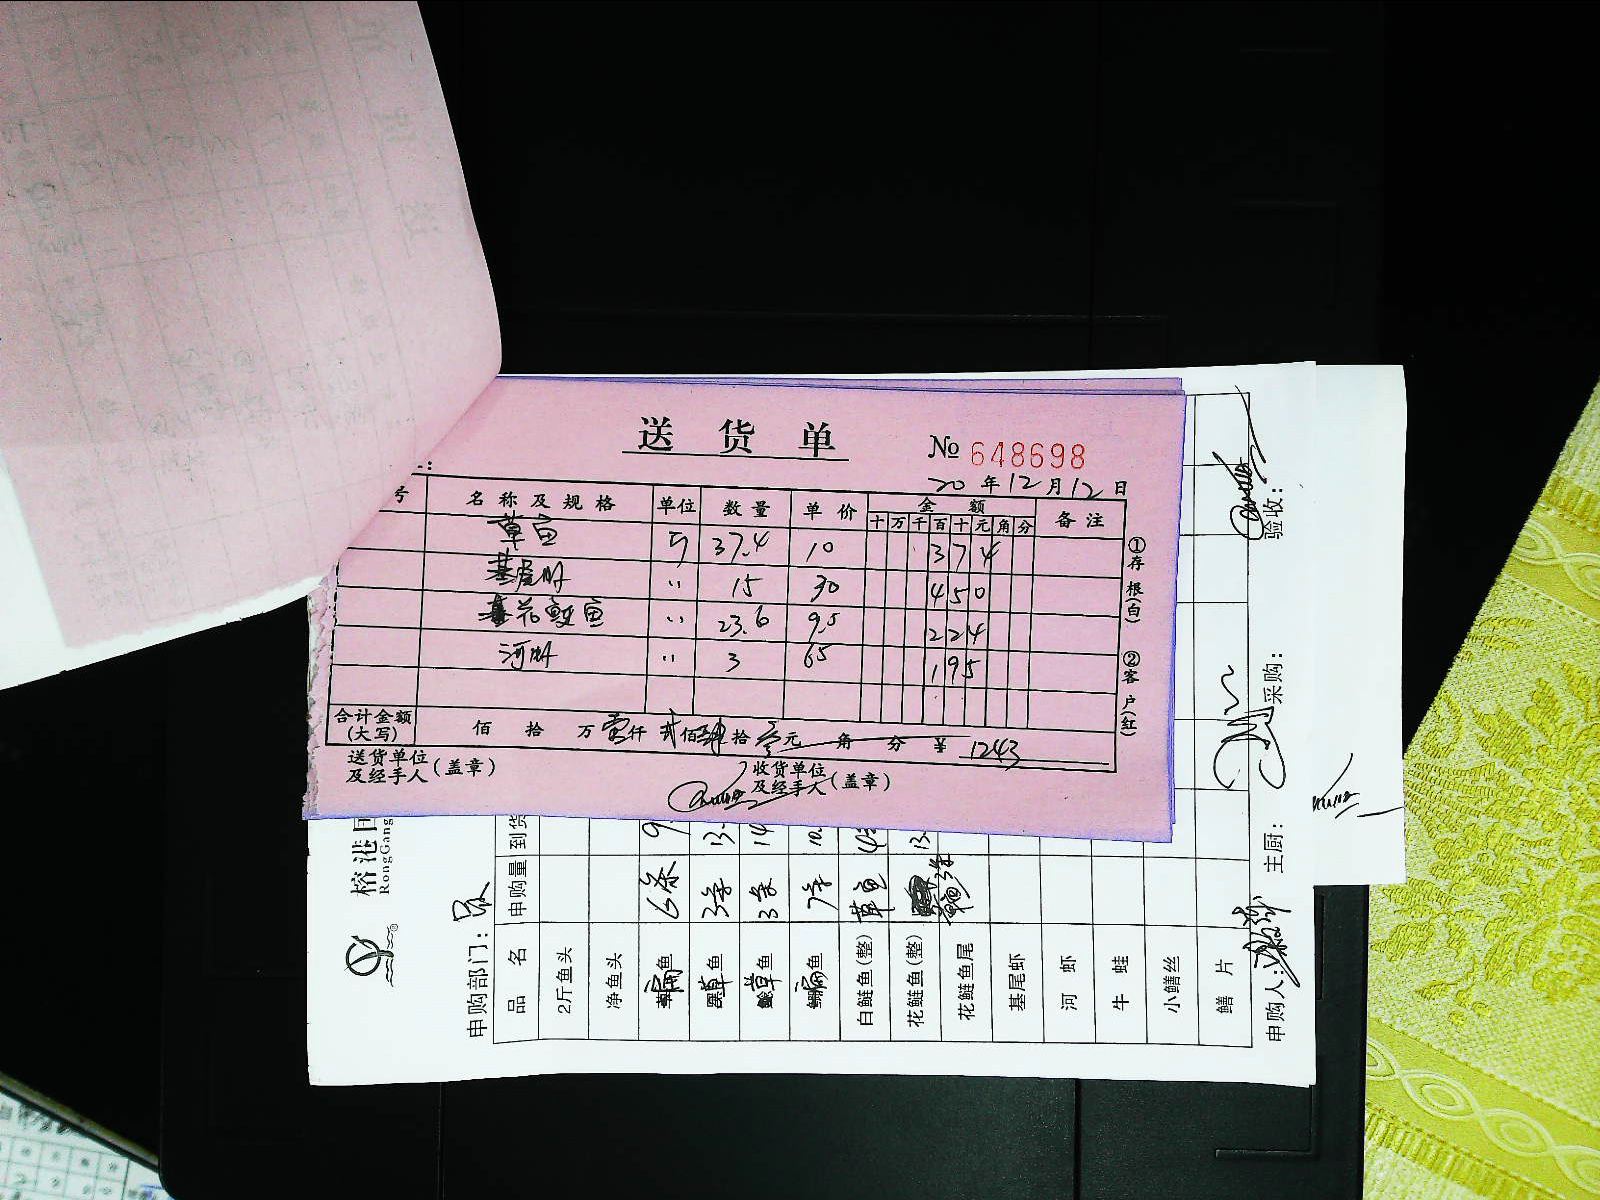 送货单
№ 648698
20年12月12日
号 名称及规格 单位 数量 单价 金额 备注
十 万 千 百 十 元 角 分
草鱼 斤 37.4 10 374
基尾虾 〃 15 30 450
花鲢鱼 〃 23.6 9.5 224
河虾 〃 3 65 195
合计金额(大写) 佰 拾 万 壹仟 贰佰 肆拾 叁元 角 分 ¥ 1243
送货单位及经手人(盖章)
收货单位及经手人(盖章)
①存根(白) ②客户(红)
榕港国
RongGang
申购部门:
品名 申购量 到货
2斤鱼头
净鱼头
鱼 6条 9
草鱼 3条 13.
草鱼 3条 14
鱼 7条 10.
白鲢鱼(整) 草鱼
花鲢鱼(整) 3条 13.
花鲢鱼尾
基尾虾
河虾
牛蛙
小鳝丝
鳝片
申购人: 主厨: 采购: 验收: